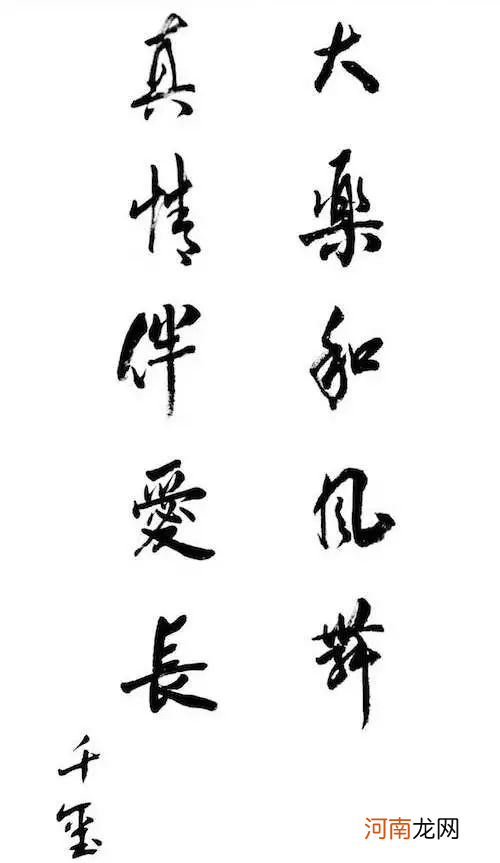 大樂和風舞
真情伴愛長
千玺
河南龙网